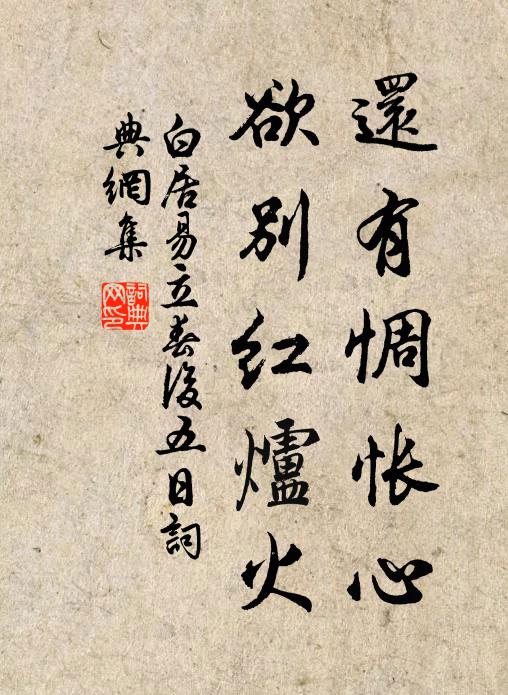 還有惆悵心
欲別紅爐火
白居易立春後五日詞
典網集
詞典網印